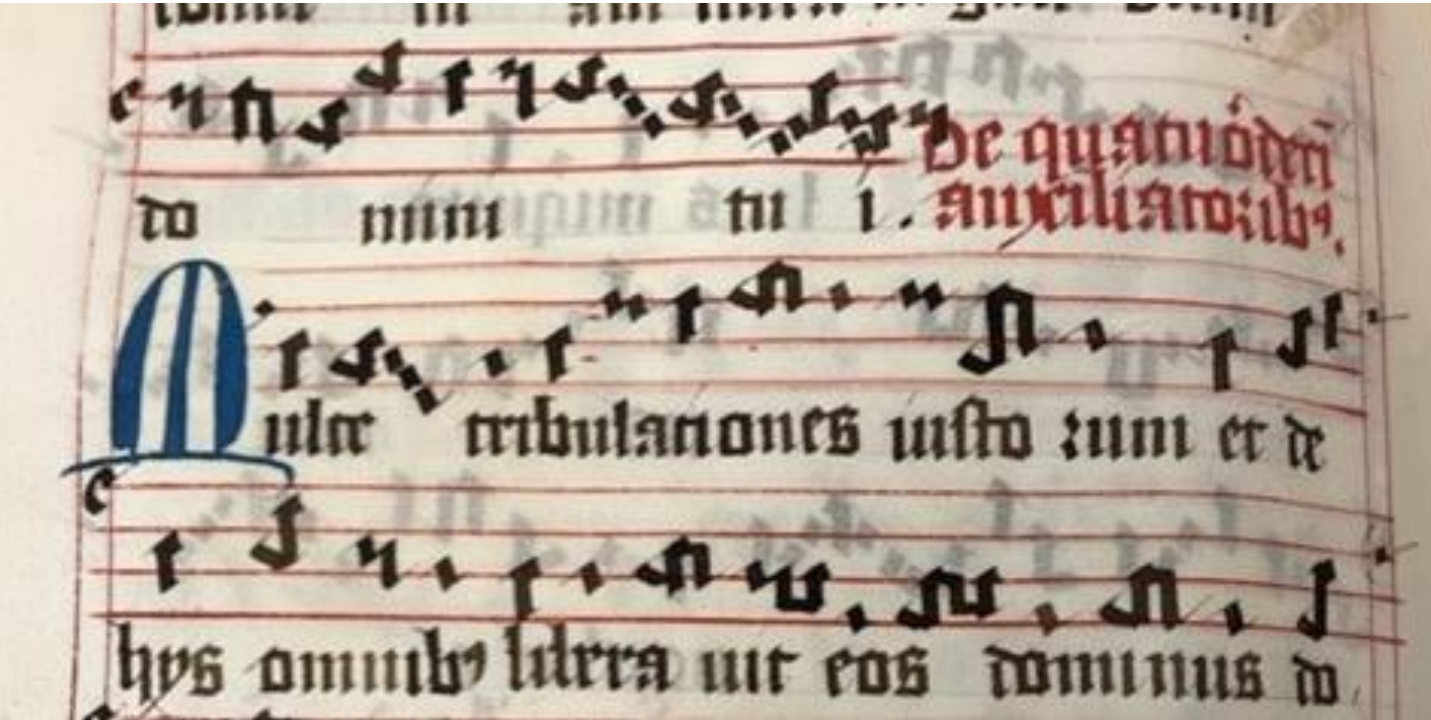 do mini tu i. De quatuordeci
auxiliatoribꝰ.
Multe tribulaciones iusto rum et de
hys omnibꝰ libera uit eos dominus do